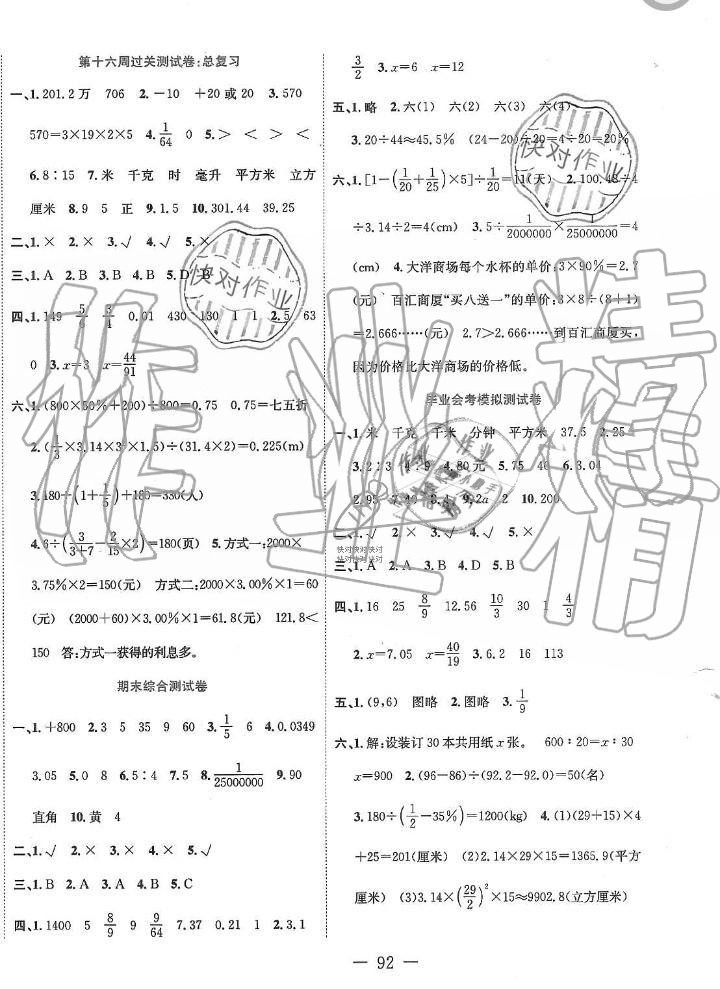 第十六周过关测试卷:总复习
一、1.201.2万 706 2.-10 +20或20 3.570
570=3×19×2×5 4.1/64 0 5.> < > <
6.8∶15 7.米 千克 时 毫升 平方米 立方
厘米 8.9 5 正 9.1.5 10.301.44 39.25
二、1.× 2.× 3.√ 4.√ 5.×
三、1.A 2.B 3.B 4.B 5.D B
四、1.149 5/6 3/4 0.01 430 130 1 1 2.5 63
0 3.x=3 x=44/91
六、1.(800×50%+200)÷800=0.75 0.75=七五折
2.(1/3×3.14×3×1.5)÷(31.4×2)=0.225(m)
3.180÷(1+1/5)+180=330(人)
4.6÷(3/(3+7)-2/15×2)=180(页) 5.方式一:2000×
3.75%×2=150(元) 方式二:2000×3.00%×1=60
(元) (2000+60)×3.00%×1=61.8(元) 121.8<
150 答:方式一获得的利息多。
期末综合测试卷
一、1.+800 2.3 5 35 9 60 3.1/5 6 4.0.0349
3.05 5.0 8 6.5∶4 7.5 8.1/25000000 9.90
直角 10.黄 4
二、1.√ 2.× 3.× 4.× 5.√
三、1.B 2.A 3.A 4.A 5.C
四、1.1400 5 8/9 9 9/64 7.37 0.21 1 2.1
3/2 3.x=6 x=12
五、1.略 2.六(1) 六(2) 六(3) 六(4)
3.20÷44≈45.5% (24-20)÷20=4÷20=20%
六、1.[1-(1/20+1/25)×5]÷1/20=11(天) 2.100.48÷4
÷3.14÷2=4(cm) 3.5÷1/2000000×1/25000000=4
(cm) 4.大洋商场每个水杯的单价:3×90%=2.7
(元) 百汇商厦“买八送一”的单价:3×8÷(8+1)
=2.666……(元) 2.7>2.666……到百汇商厦买,
因为价格比大洋商场的价格低。
毕业会考模拟测试卷
一、1.米 千克 千米 分钟 平方米 37.5 2.25
3.2∶3 4∶9 4.80元 5.75 40 6.3.04
2.95 7.40 8.4 9.2a 2 10.200
二、1.√ 2.× 3.√ 4.√ 5.×
三、1.A 2.A 3.B 4.D 5.B
四、1.16 25 8/9 12.56 10/3 30 1 4/3
2.x=7.05 x=40/19 3.6.2 16 113
五、1.(9,6) 图略 2.图略 3.1/9
六、1.解:设装订30本共用纸x张。 600∶20=x∶30
x=900 2.(96-86)÷(92.2-92.0)=50(名)
3.180÷(1/2-35%)=1200(kg) 4.(1)(29+15)×4
+25=201(厘米) (2)3.14×29×15=1365.9(平方
厘米) (3)3.14×(29/2)²×15≈9902.8(立方厘米)
— 92 —
快对作业
快对作业
作业精